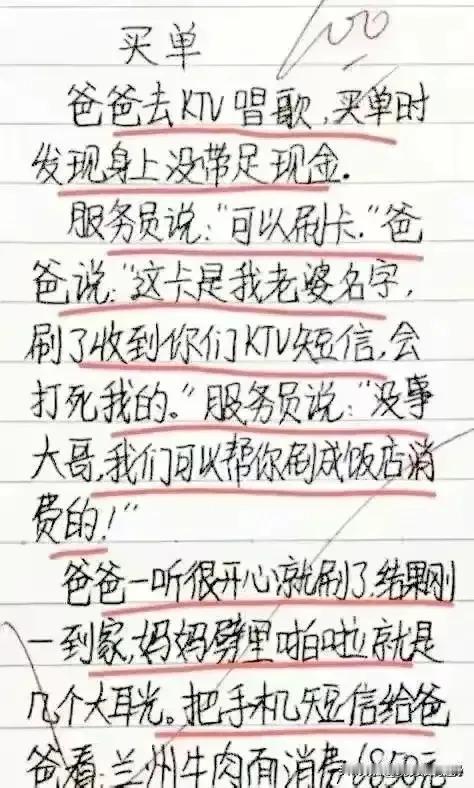 100
买单
爸爸去KTV唱歌,买单时
发现身上没带足现金.
服务员说:“可以刷卡.”爸
爸说:“这卡是我老婆名字,
刷了收到你们KTV短信,会
打死我的.”服务员说:“没事
大哥,我们可以帮你刷成饭店消
费的!”
爸爸一听很开心就刷了,结果刚
一到家,妈妈劈里啪啦就是
几个大耳光。把手机短信给爸
爸看:兰州牛肉面消费6850元